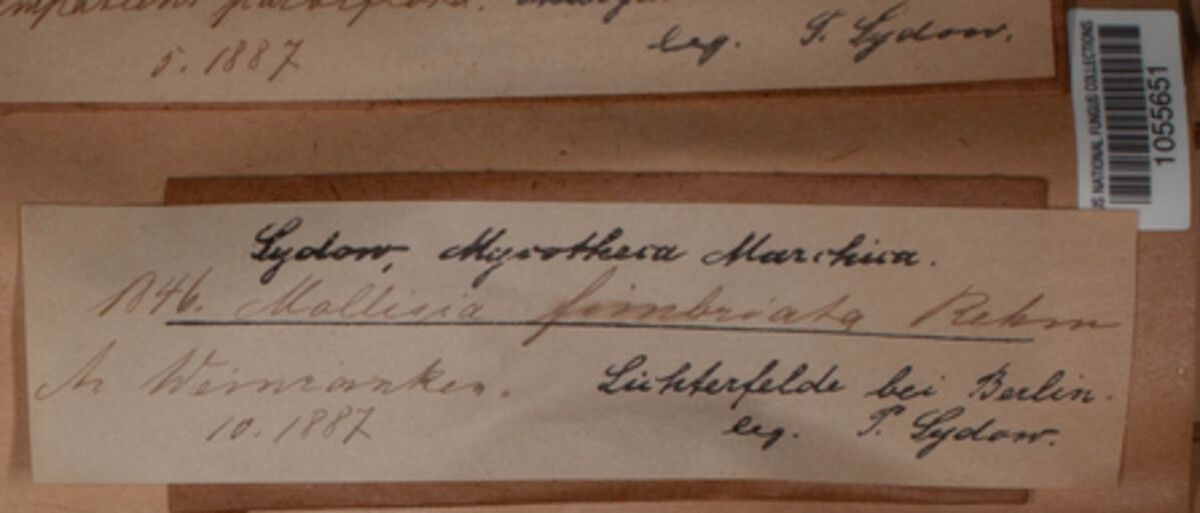 Impatiens parviflora.
5. 1887 leg. P. Sydow.
US NATIONAL FUNGUS COLLECTIONS
1055651
Sydow, Mycotheca Marchica.
1846. Mollisia fimbriata Rehm
An Weinranken. Lichterfelde bei Berlin.
10. 1887 leg. P. Sydow.